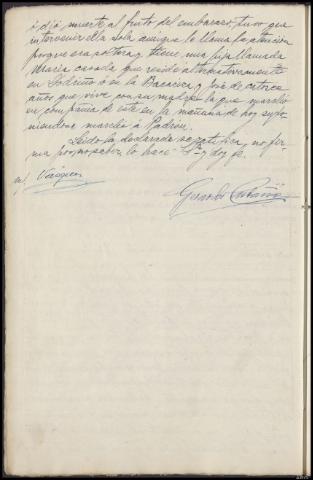 ó dió muerte al fruto del embarazo, tuvo que
intervenir ella sola aunque le llama la atencion
porque era soltera y tiene una hija llamada
Maria casada que reside alternativamente
en Sobrino ó en la y José de catorce
años que vive con su madre la que marchó
en compañia de este en la mañana de hoy supo-
niendose marchó á Padrón.
Leido lo declarado se ratifica, no fir-
ma por no saber lo hace S.Sª y doy fe.
m/ Vazquez
Gerardo